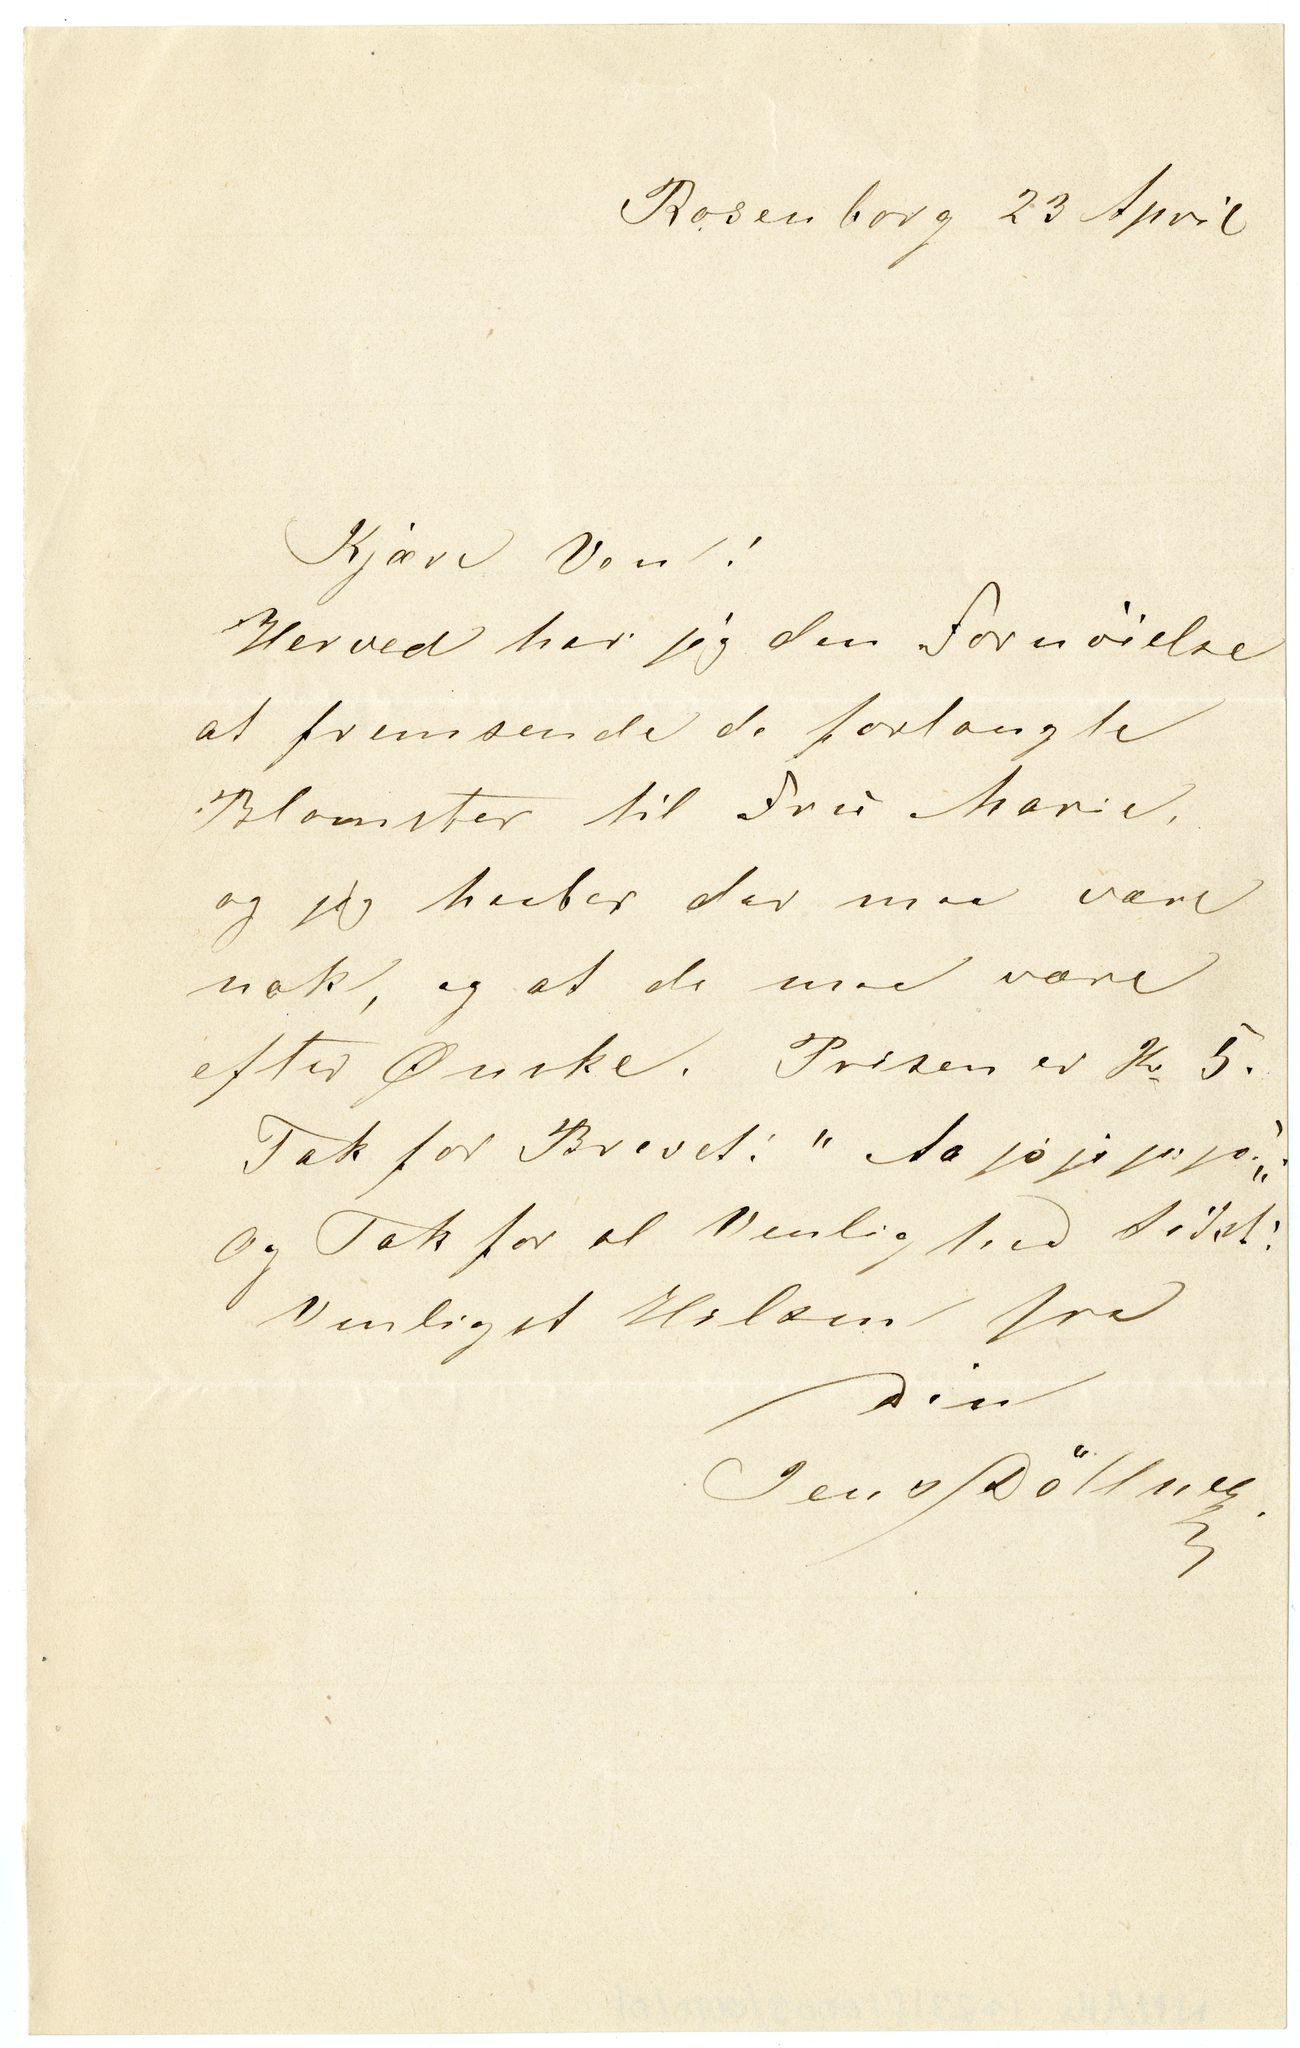 Rosenborg 23 April
Kjære Ven!
Herved har jeg den Fornöielse
at fremsende de forlangte
Blomster til Fru Marie,
og jeg haaber der maa være
nok, og at de maa være
efter Ønske. Prisen er Kr. 5.
Tak for Brevet! "Aa jo jo jo jo!"
og Tak for al Venlighed sidst!
Venligst Hilsen fra
Din
Jens Döllner.